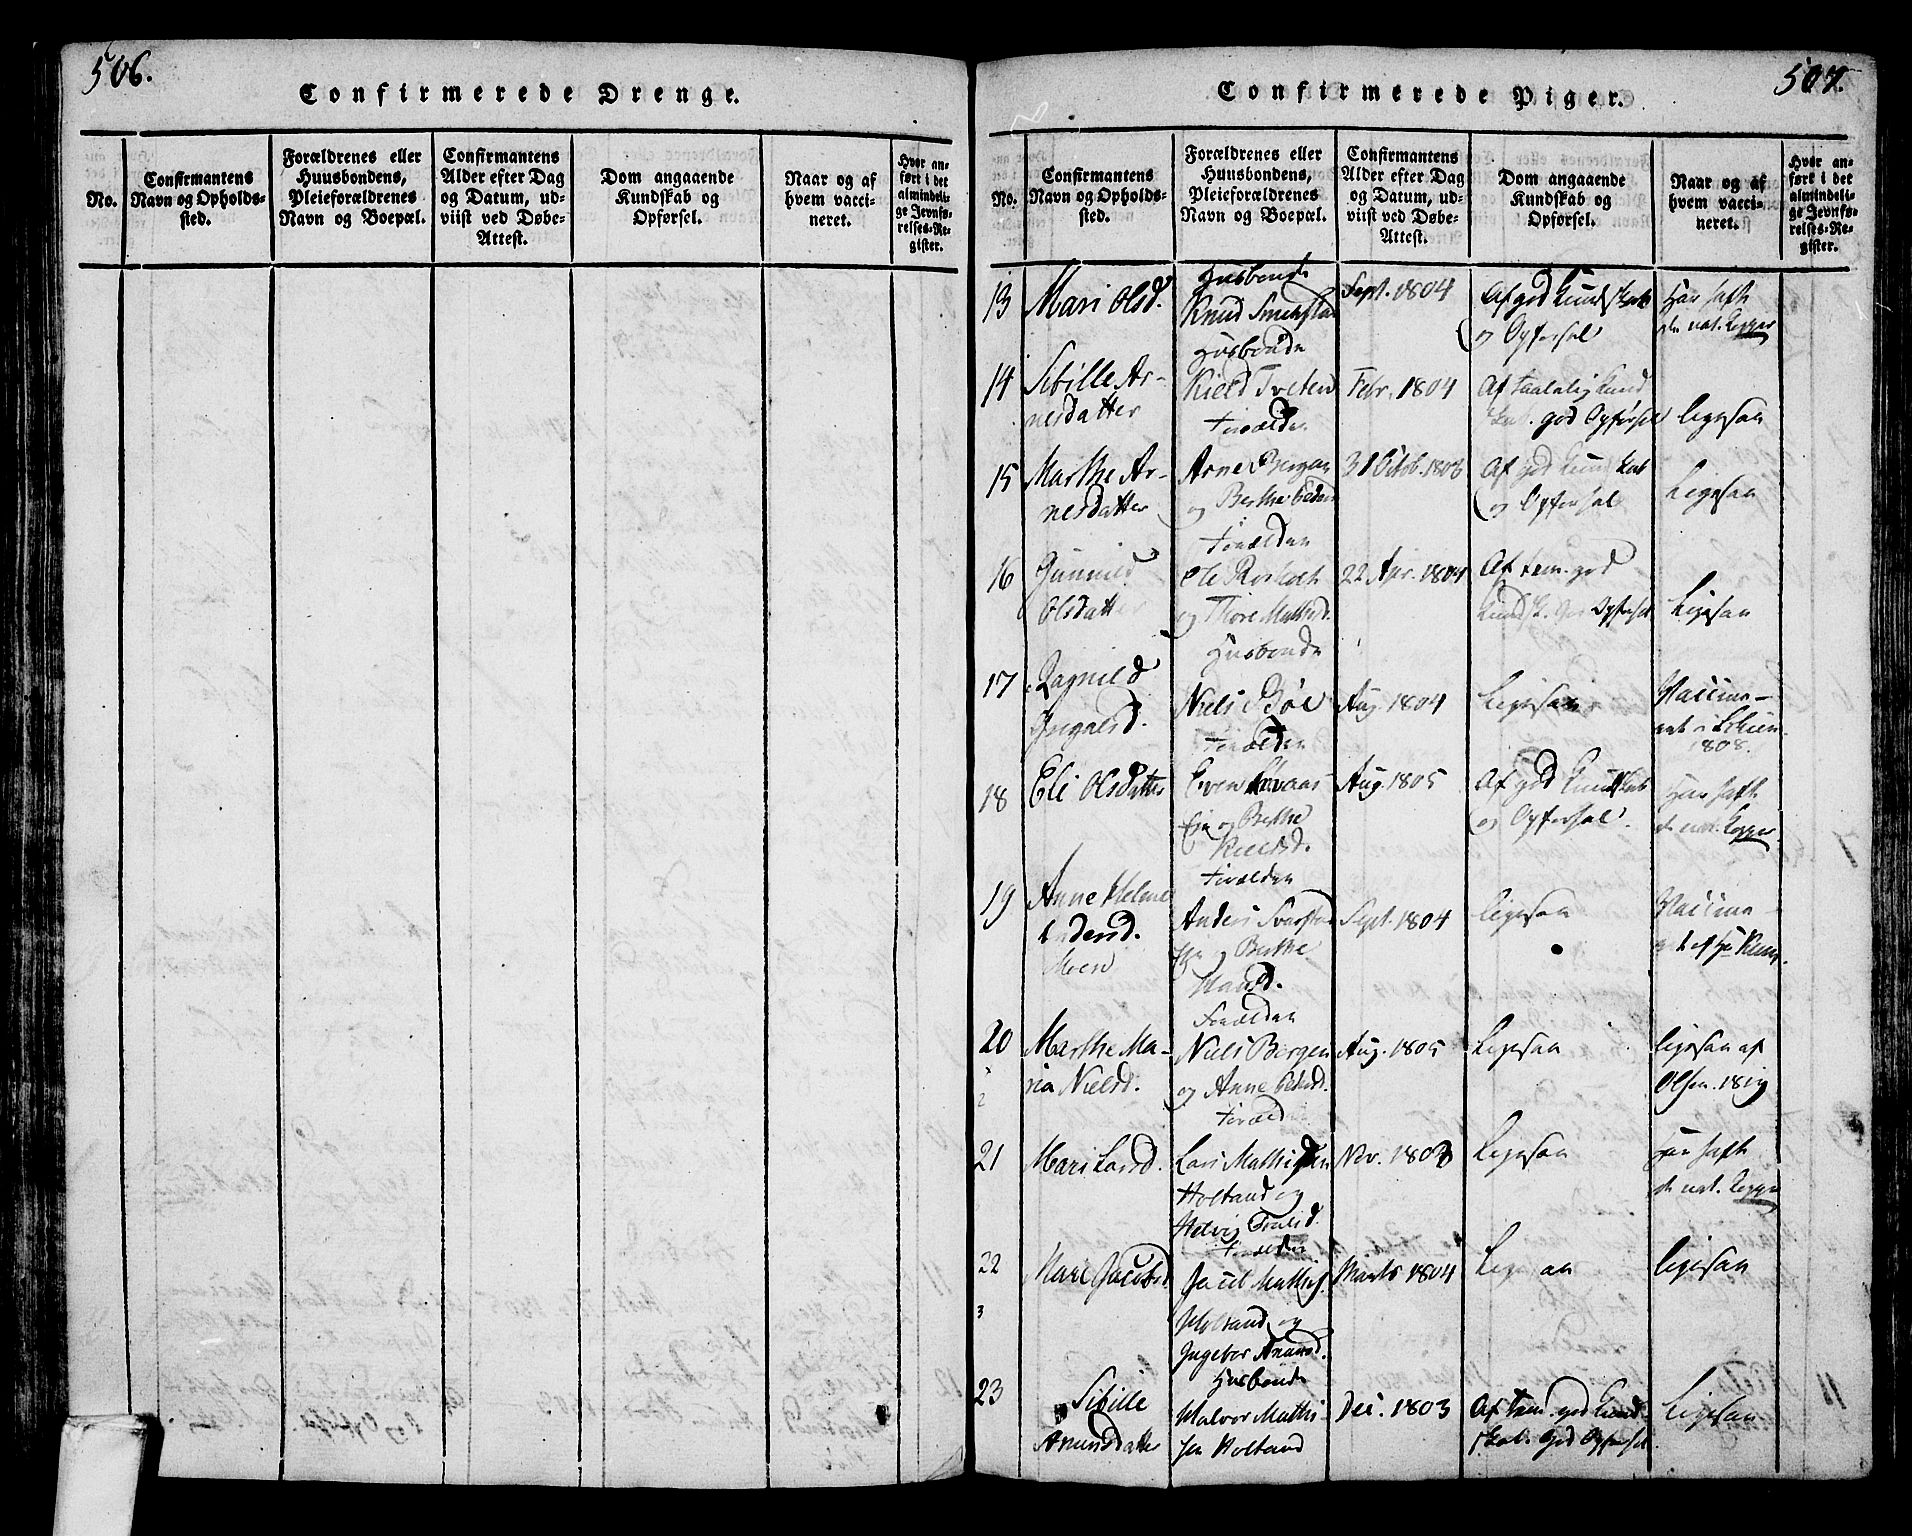 506.
Confirmerede Drenge.
No.
Confirmantens
Navn og Opholds-
sted.
Forældrenes eller
Huusbondens,
Pleieforældrenes
Navn og Boepæl.
Confirmantens
Alder efter Dag
og Datum, ud-
viist ved Døbe-
Attest.
Dom angaaende
Kundskab og
Opførsel.
Naar og af
hvem vacci-
neret.
Hvor an-
ført i det
almindeli-
ge Jevnfø-
relses-Re-
gister.
507.
Confirmerede Piger.
No.
Confirmantens
Navn og Opholds-
sted.
Forældrenes eller
Huusbondens,
Pleieforældrenes
Navn og Boepæl.
Confirmantens
Alder efter Dag
og Datum, ud-
viist ved Døbe-
Attest.
Dom angaaende
Kundskab og
Opførsel.
Naar og af
hvem vacci-
neret.
Hvor an-
ført i det
almindeli-
ge Jevnfø-
relses-Re-
gister.
13
Mari Olsd.
Husbonde
Knud
Sept. 1804
Af god Kundskab
og Opførsel
Har haft
de nat. Kopper
14
Sibille Ar-
nesdatter
Husbonde
Kield Tveten
Febr. 1804
Af taalelig Kund
skab. god Opførsel
ligesaa
15
Marthe Ar-
nesdatter
Forældre
Arne Bergan
og Berthe
31 Octob. 1803
Af god Kundskab
og Opførsel
Ligesaa
16
Gunnild
Olsdatter
Forældre
Ole
og Thore Mathisd.
22 Apr. 1804
Af tem. god
Kundsk. god Opførsel
Ligesaa
17
Ragnild
Husbonde
Niels Bøe
Aug. 1804
Ligesaa
Vaccine-
ret i Schien
1808.
18
Eli Olsdatter
Forældre
Even
og Berthe
Kieldsd.
Aug. 1805
Af god Kundskab
og Opførsel.
Har haft
de nat. Kopper
19
Anne Helene
Andersd.
Moen
Forældre
Anders
og Berthe
Hansd.
Sept. 1804
ligesaa
Vaccine-
20
Marthe Ma-
ria Nielsd.
Forældre
Niels Bergan
og Anne
Aug. 1805
Ligesaa
ligesaa af
Olsen.
21
Mari Larsd.
Forældre
Lars Mathisen
Holtand og
Helvig
Nov. 1803
Ligesaa
Har haft
de nat. Kopper
22
3
Mari Jacobsd.
Forældre
Jacob Mathis.
Holtand og
Ingebor
Marts 1804
Ligesaa
ligesaa
23
Sibille
Amunsdatter
Husbonde
Halvor Mathi-
sen Holtand
Dec. 1803
Af tem. god Kund-
skab. god Opførsel
Ligesaa